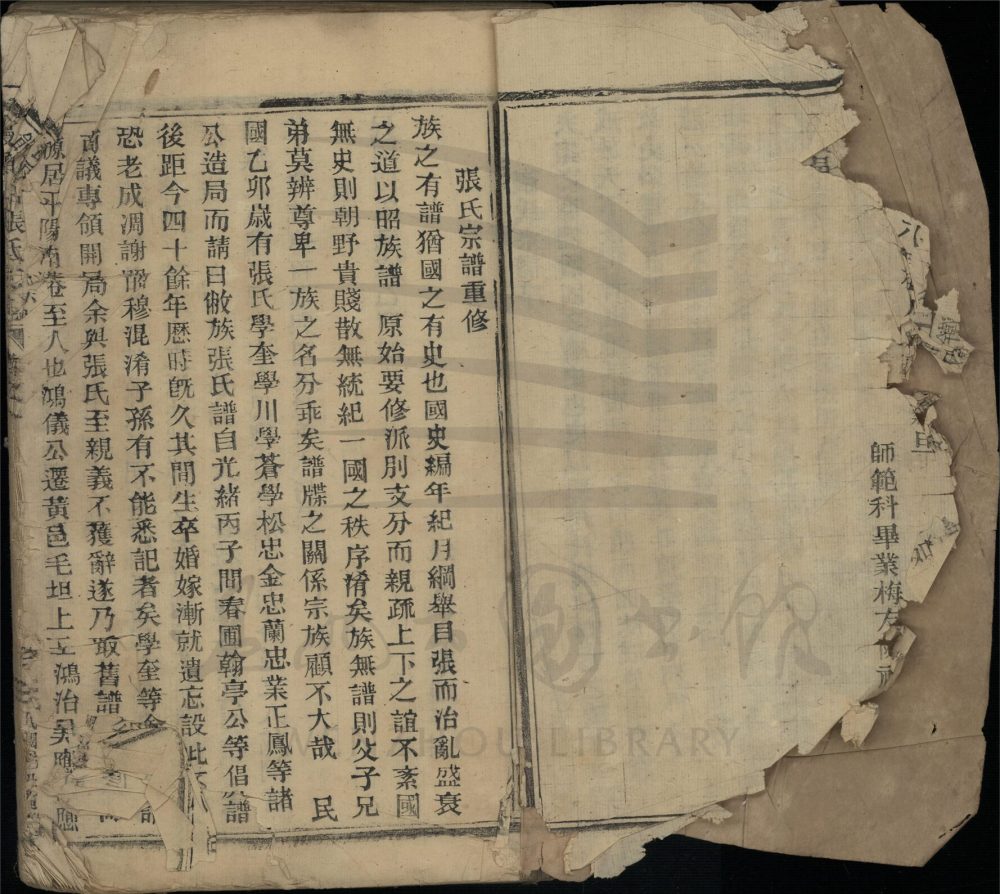 師範科畢業梅
張氏宗譜重修
族之有譜猶國之有史也國史編年紀月綱舉目張而治亂盛衰
之道以昭族譜 原始要修派別支分而親疏上下之誼不紊國
無史則朝野貴賤散無統紀一國之秩序淆矣族無譜則父子兄
弟莫辨尊卑一族之名分乖矣譜牒之關係宗族顧不大哉 民
國乙卯歲有張氏學奎學川學蒼學松忠金忠蘭忠業正鳳等諸
公造局而請曰敝族張氏譜自光緒丙子間春圃翰亭公等倡譜
後距今四十餘年歷時旣久其間生卒婚嫁漸就遺忘設此
恐老成凋謝昭穆混淆子孫有不能悉記者矣學奎等
議專領開局余與張氏至親義不獲辭遂乃取舊譜
源居平陽南巷至人也鴻儀公遷黃邑毛坦上至鴻治
WENZHOU LIBRARY